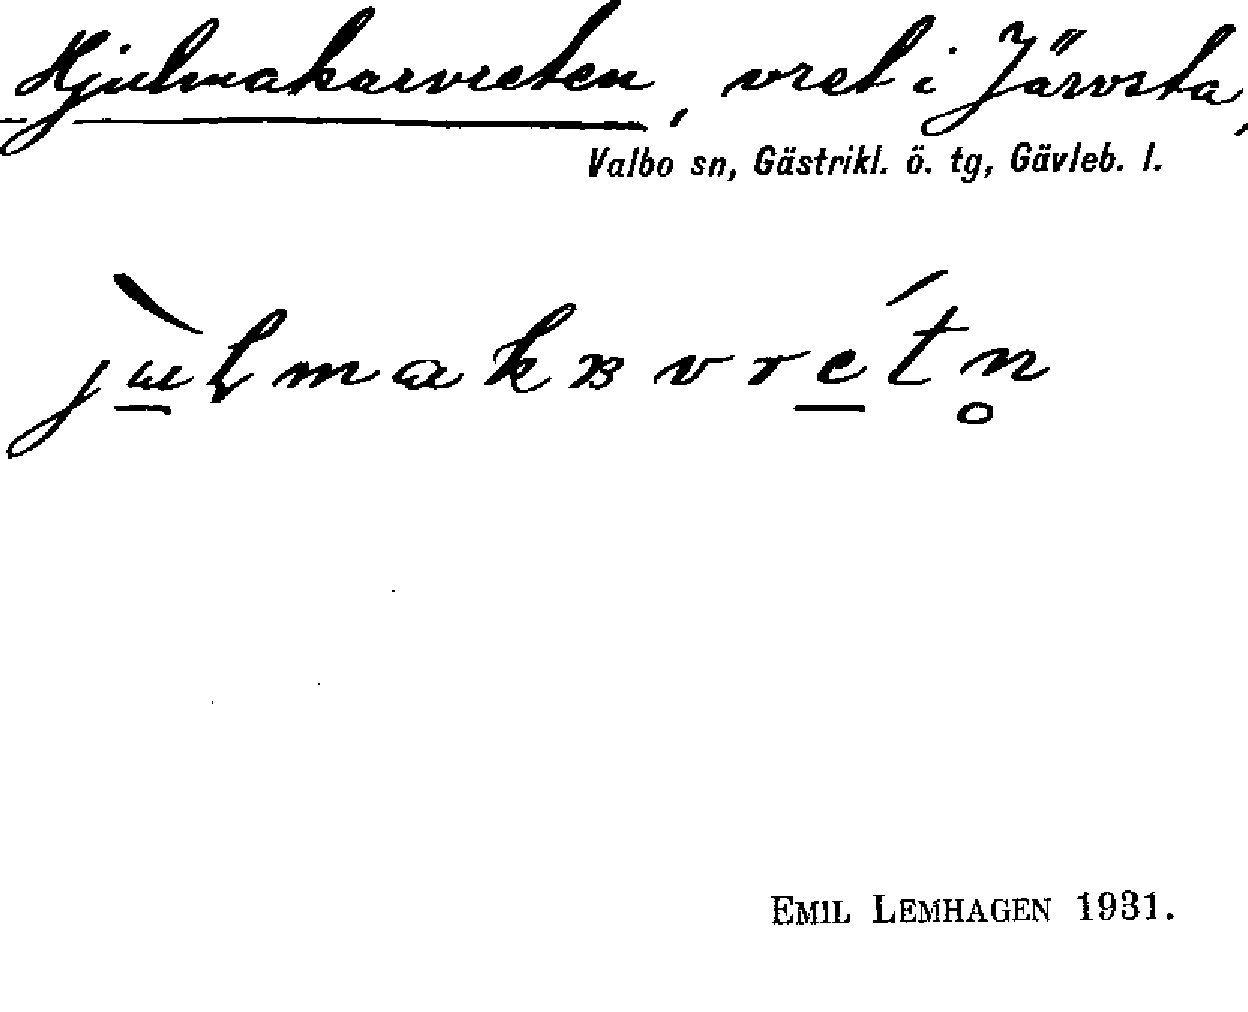 Hjulmakarvreten, vret i Järvsta,
Valbo sn, Gästrikl. ö. tg, Gävleb. l.
EMIL LEMHAGEN 1931.